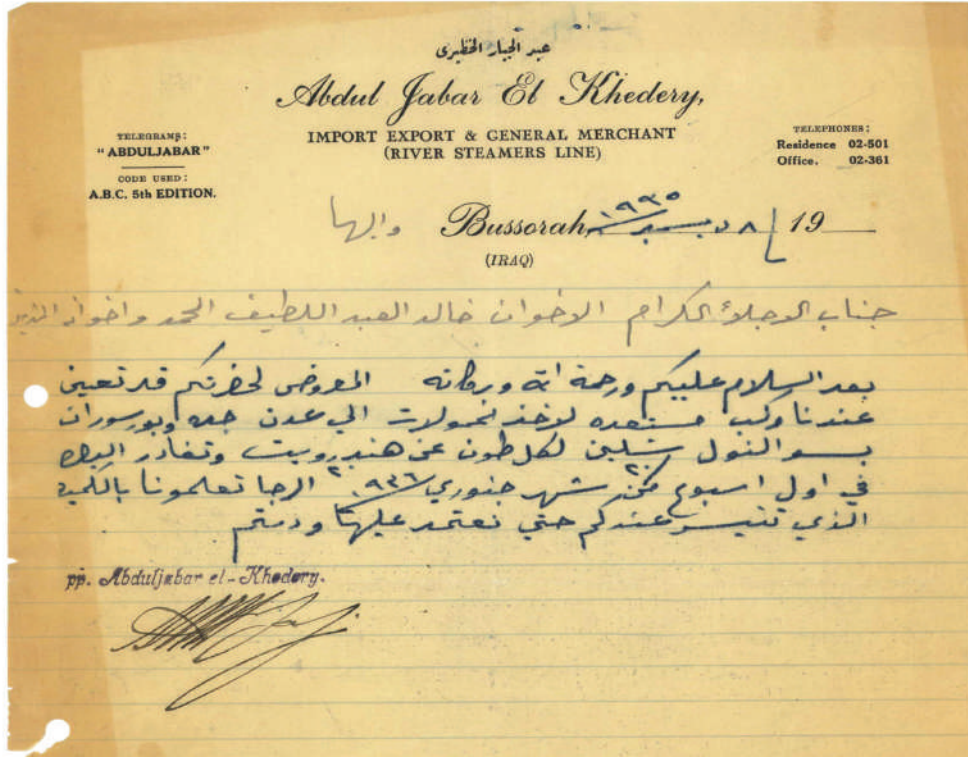 عبد الجبار الخظيرى
Abdul Jabar El Khedery,
IMPORT EXPORT & GENERAL MERCHANT
(RIVER STEAMERS LINE)
TELEGRAMS:
"ABDULJABAR"
CODE USED:
A.B.C. 5th EDITION.
TELEPHONES:
Residence 02-501
Office. 02-361
Bussorah, ٨ دیسمبر ١٩٣٥ 19
(IRAQ)
جناب الاجلاء الكرام الاخوان خالد العبد اللطيف الحمد واخوانه
بعد السلام عليكم ورحمة الله وبركاته المعروض لحضرتكم قد تعين
عندنا مركب مستعده لاخذ حمولات الي عدن جده وبورسودان
بسو النول شلين ٢٠ لكل طون عن هندرويت وتغادر البصره
في اول اسبوع من شهر جنوري ١٩٣٦ الرجا تعلمونا بالكمية
الذي تتيسر عندكم حتي نعتمد عليها ودمتم
pp. Abduljabar el-Khedery.